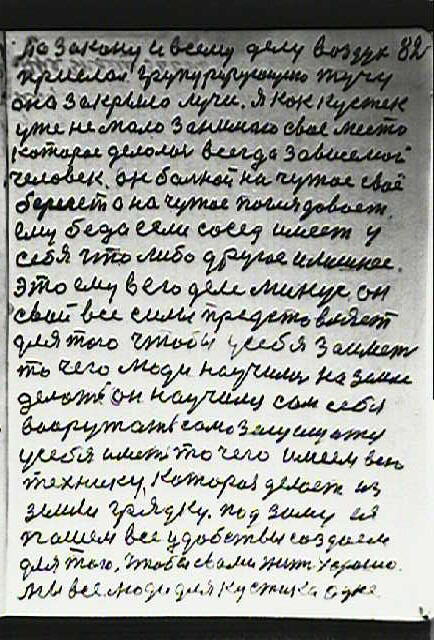 По закону и всему делу воздух 82
прислал группирующую тучу
она закрыло лучи. Я как кустек
уже не мало занимаю свое место
которое делолы всегда зависемой
человек. он болной на чужое своё
берегет а на чужое поглядовает.
ему беда если сосед имеет у
себя что либо другое илишное.
Это ему в его деле минус он
свои все сили предстовляет
для того чтобы усебя заимет
то чего люди научилис на земле
делать он научилис сам себя
вооружать самозащищату
усебя имет то чего имеем всю
технику, которая делает из
земли грядку. под зиму ея
пашем все удобствы создаем
для того, чтобы свами жит хорошо.
мы все люди для кустика одне